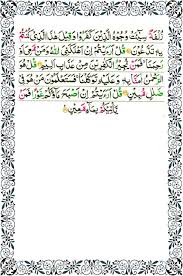 زُلْفَةً سِيْٓـَٔتْ وُجُوْهُ الَّذِيْنَ كَفَرُوْا وَقِيْلَ هٰذَا الَّذِيْ كُنْتُمْ
بِهٖ تَدَّعُوْنَ ۝ قُلْ اَرَءَيْتُمْ اِنْ اَهْلَكَنِيَ اللّٰهُ وَمَنْ مَّعِيَ اَوْ
رَحِمَنَا فَمَنْ يُّجِيْرُ الْكٰفِرِيْنَ مِنْ عَذَابٍ اَلِيْمٍ ۝ قُلْ هُوَ
الرَّحْمٰنُ اٰمَنَّا بِهٖ وَعَلَيْهِ تَوَكَّلْنَا فَسَتَعْلَمُوْنَ مَنْ هُوَ فِيْ
ضَلٰلٍ مُّبِيْنٍ ۝ قُلْ اَرَءَيْتُمْ اِنْ اَصْبَحَ مَآؤُكُمْ غَوْرًا فَمَنْ
يَّاْتِيْكُمْ بِمَآءٍ مَّعِيْنٍ ۝